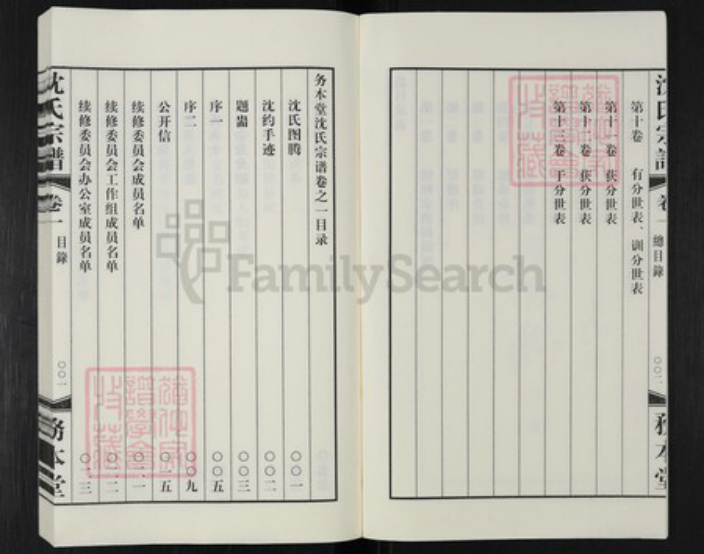 沈氏宗譜 卷一 總目錄 〇〇二 務本堂
第十卷 有分世表、训分世表
第十一卷 获分世表
第十二卷 获分世表
第十三卷 于分世表
务本堂沈氏宗谱卷之一目录
沈氏图腾 〇〇一
沈约手迹 〇〇二
题黹 〇〇三
序一 〇〇五
序二 〇〇九
公开信 〇一五
续修委员会成员名单 〇二一
续修委员会工作组成员名单 〇二二
续修委员会办公室成员名单 〇二三
沈氏宗譜 卷一 目錄 〇〇一 務本堂
FamilySearch